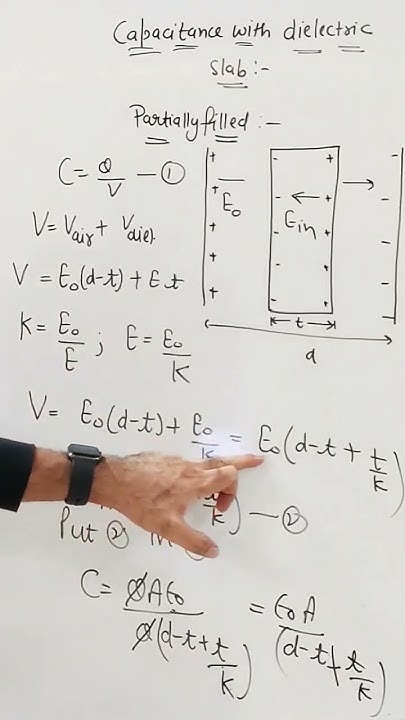 Capacitance with dielectric
slab:-
Partially filled:-
C = Q/V — ①
V = Vair + Vdiel.
V = E₀(d-t) + E t
K = E₀/E ; E = E₀/K
V = E₀(d-t) + E₀/K = E₀(d-t + t/K)
t/K) — ②
Put ② in
C = QAε₀/Q(d-t+t/K) = ε₀A/(d-t+t/K)
+ + + + +
E₀
- - - - -
Ein
+ + + + +
- - - - - -
t
d